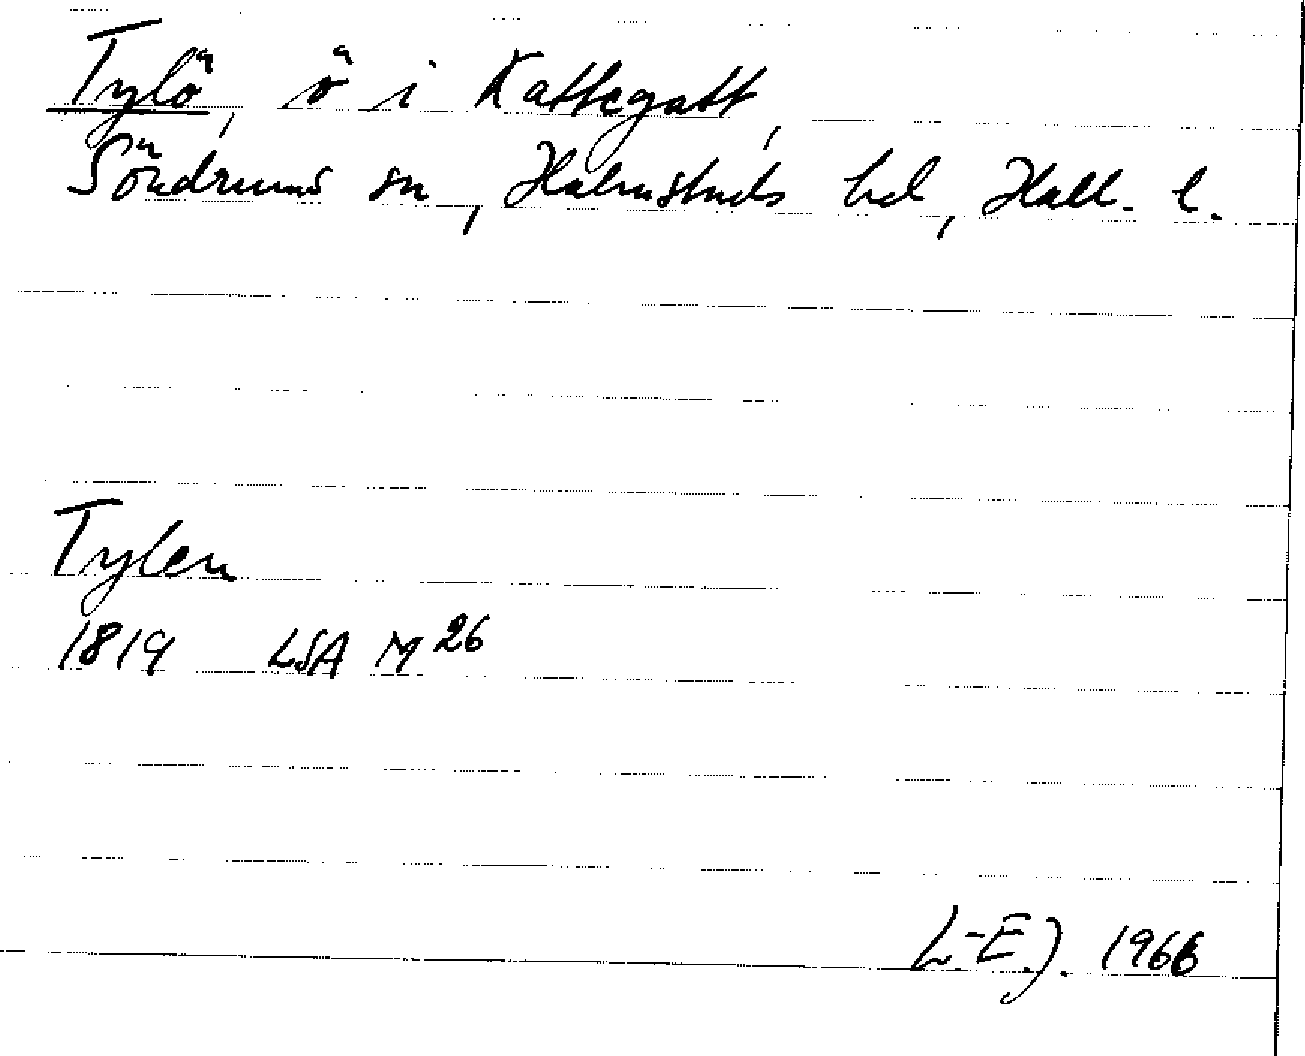 Tylö, ö i Kattegatt,
Söndrums sn, Halmstads hd, Hall. l.
Tylen
1819 LSA M 26
L-E J. 1966